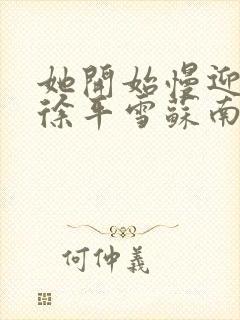 她開始慢迎
徐平雪蘇南
何仲義